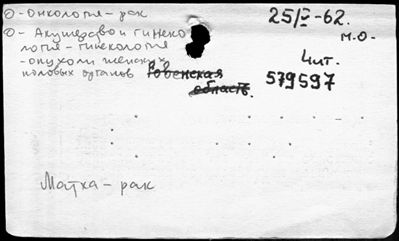 ⊙ - Онкология - рак
25/V-62.
⊙ - Акушерство и гинеко
м.о-
логия - гинекология
- опухоли женских
половых органов
Чит.
Ровенская
579597
область.
Матка - рак